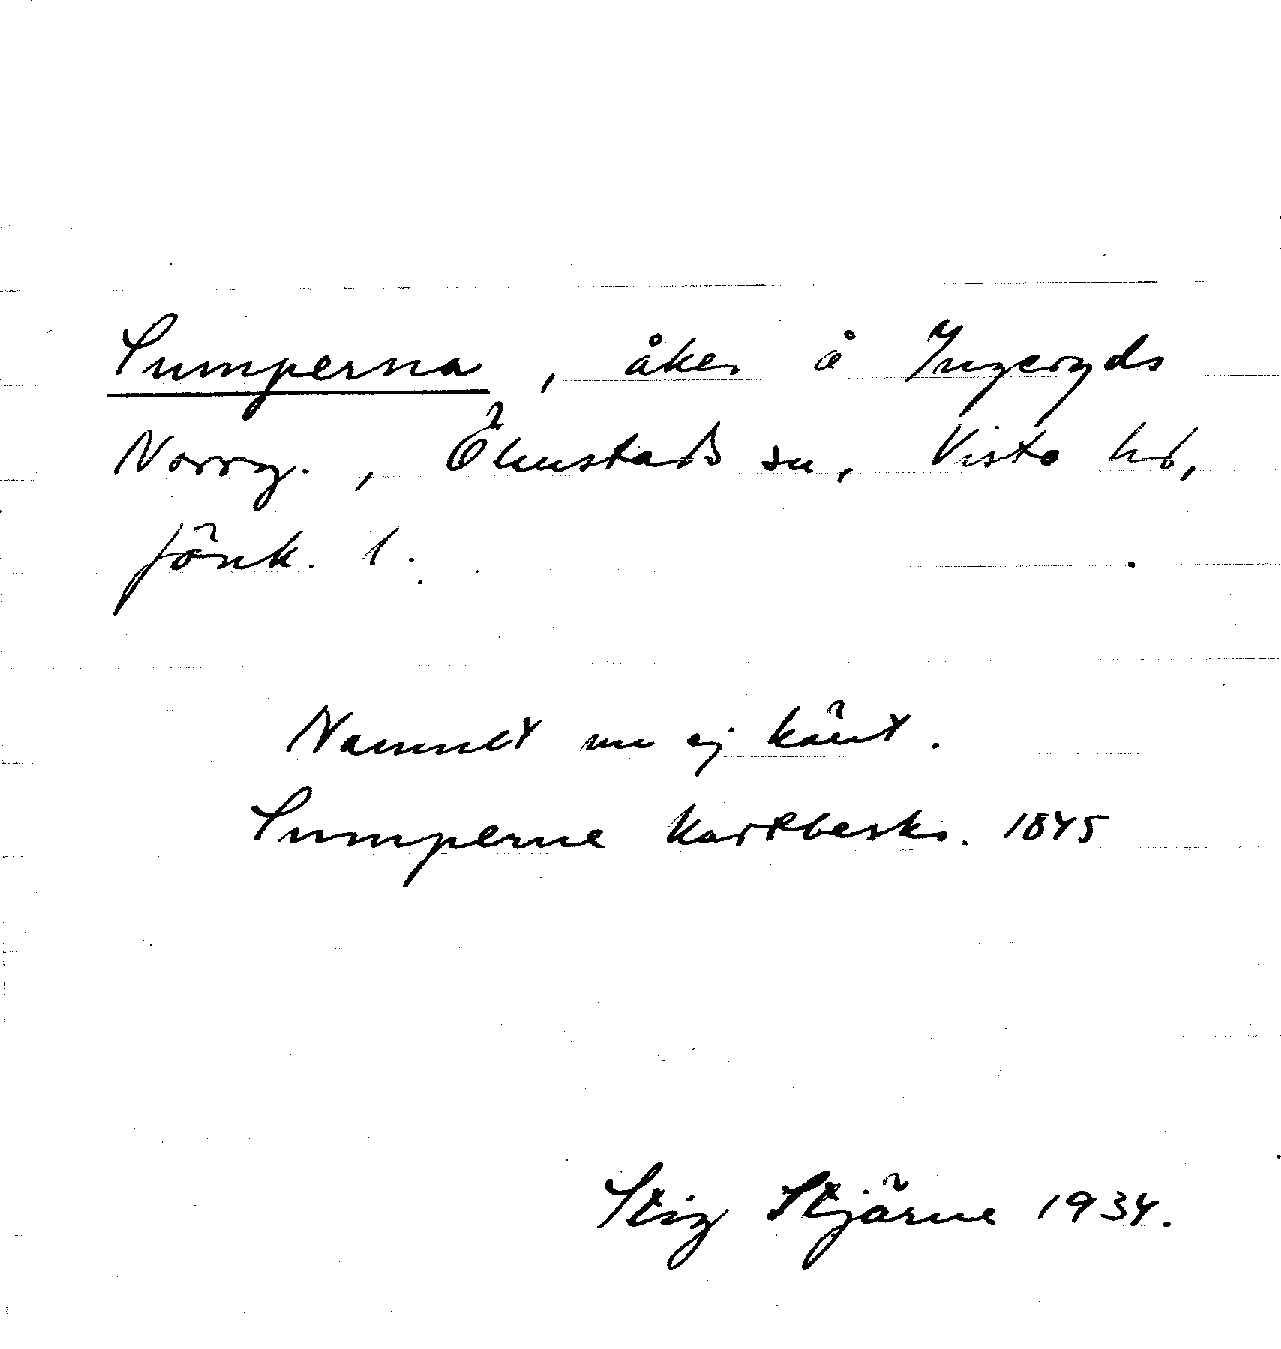 Sumperna, åker å Ingeryds
Norrg., Ölmstads sn, Vista hd,
Jönk. l.
Namnet nu ej känt.
Sumperne kartbeskr. 1845
Stig Stjärne 1934.